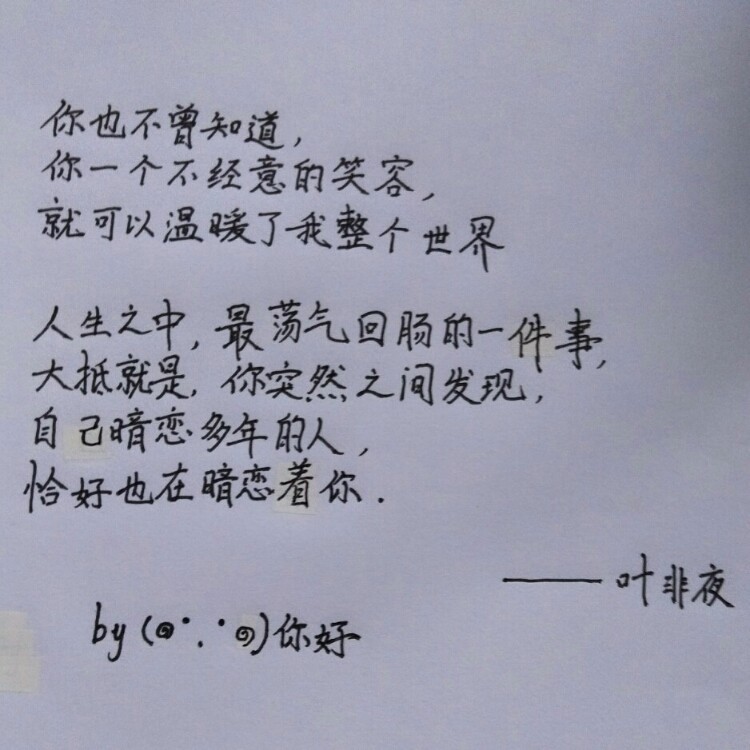 你也不曾知道，
你一个不经意的笑容，
就可以温暖了我整个世界
人生之中，最荡气回肠的一件事，
大抵就是，你突然之间发现，
自己暗恋多年的人，
恰好也在暗恋着你．
——叶非夜
by (๑•.•๑)你好